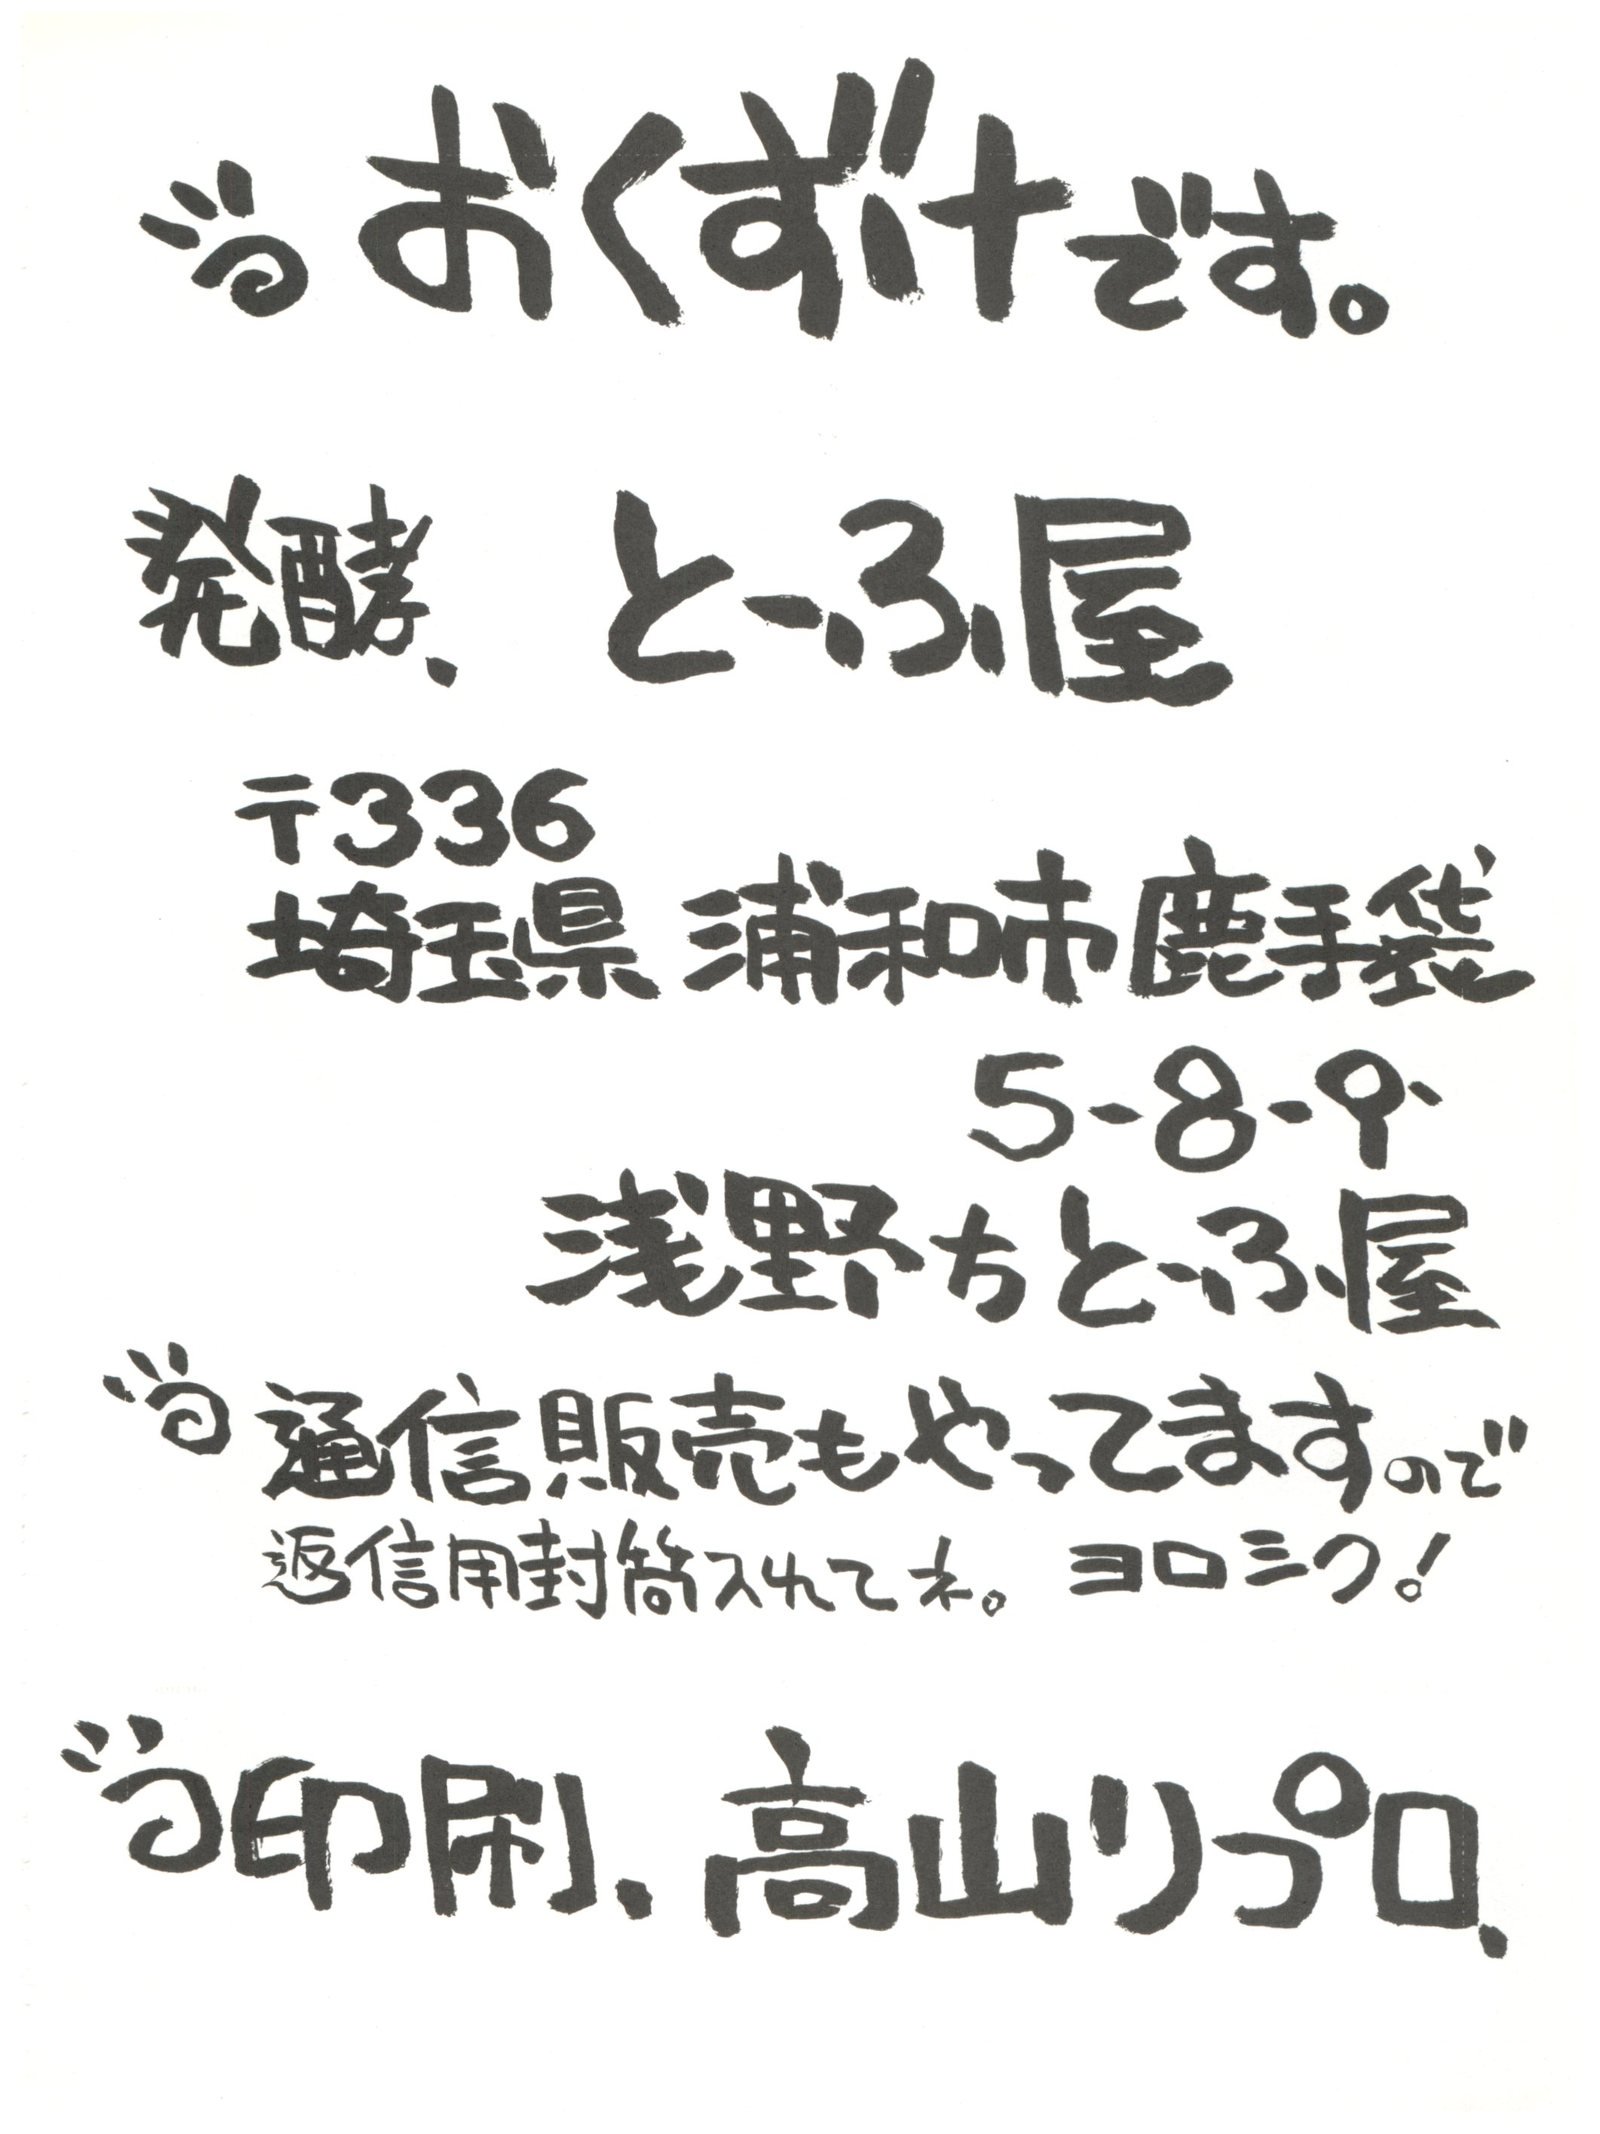 おくずけです。
発酵、とーふ屋
〒336
埼玉県 浦和市 鹿手袋
5-8-9-
浅野方とーふ屋
通信販売もやってますので
返信用封筒入れてネ。ヨロシク!
印刷、高山リプロ、